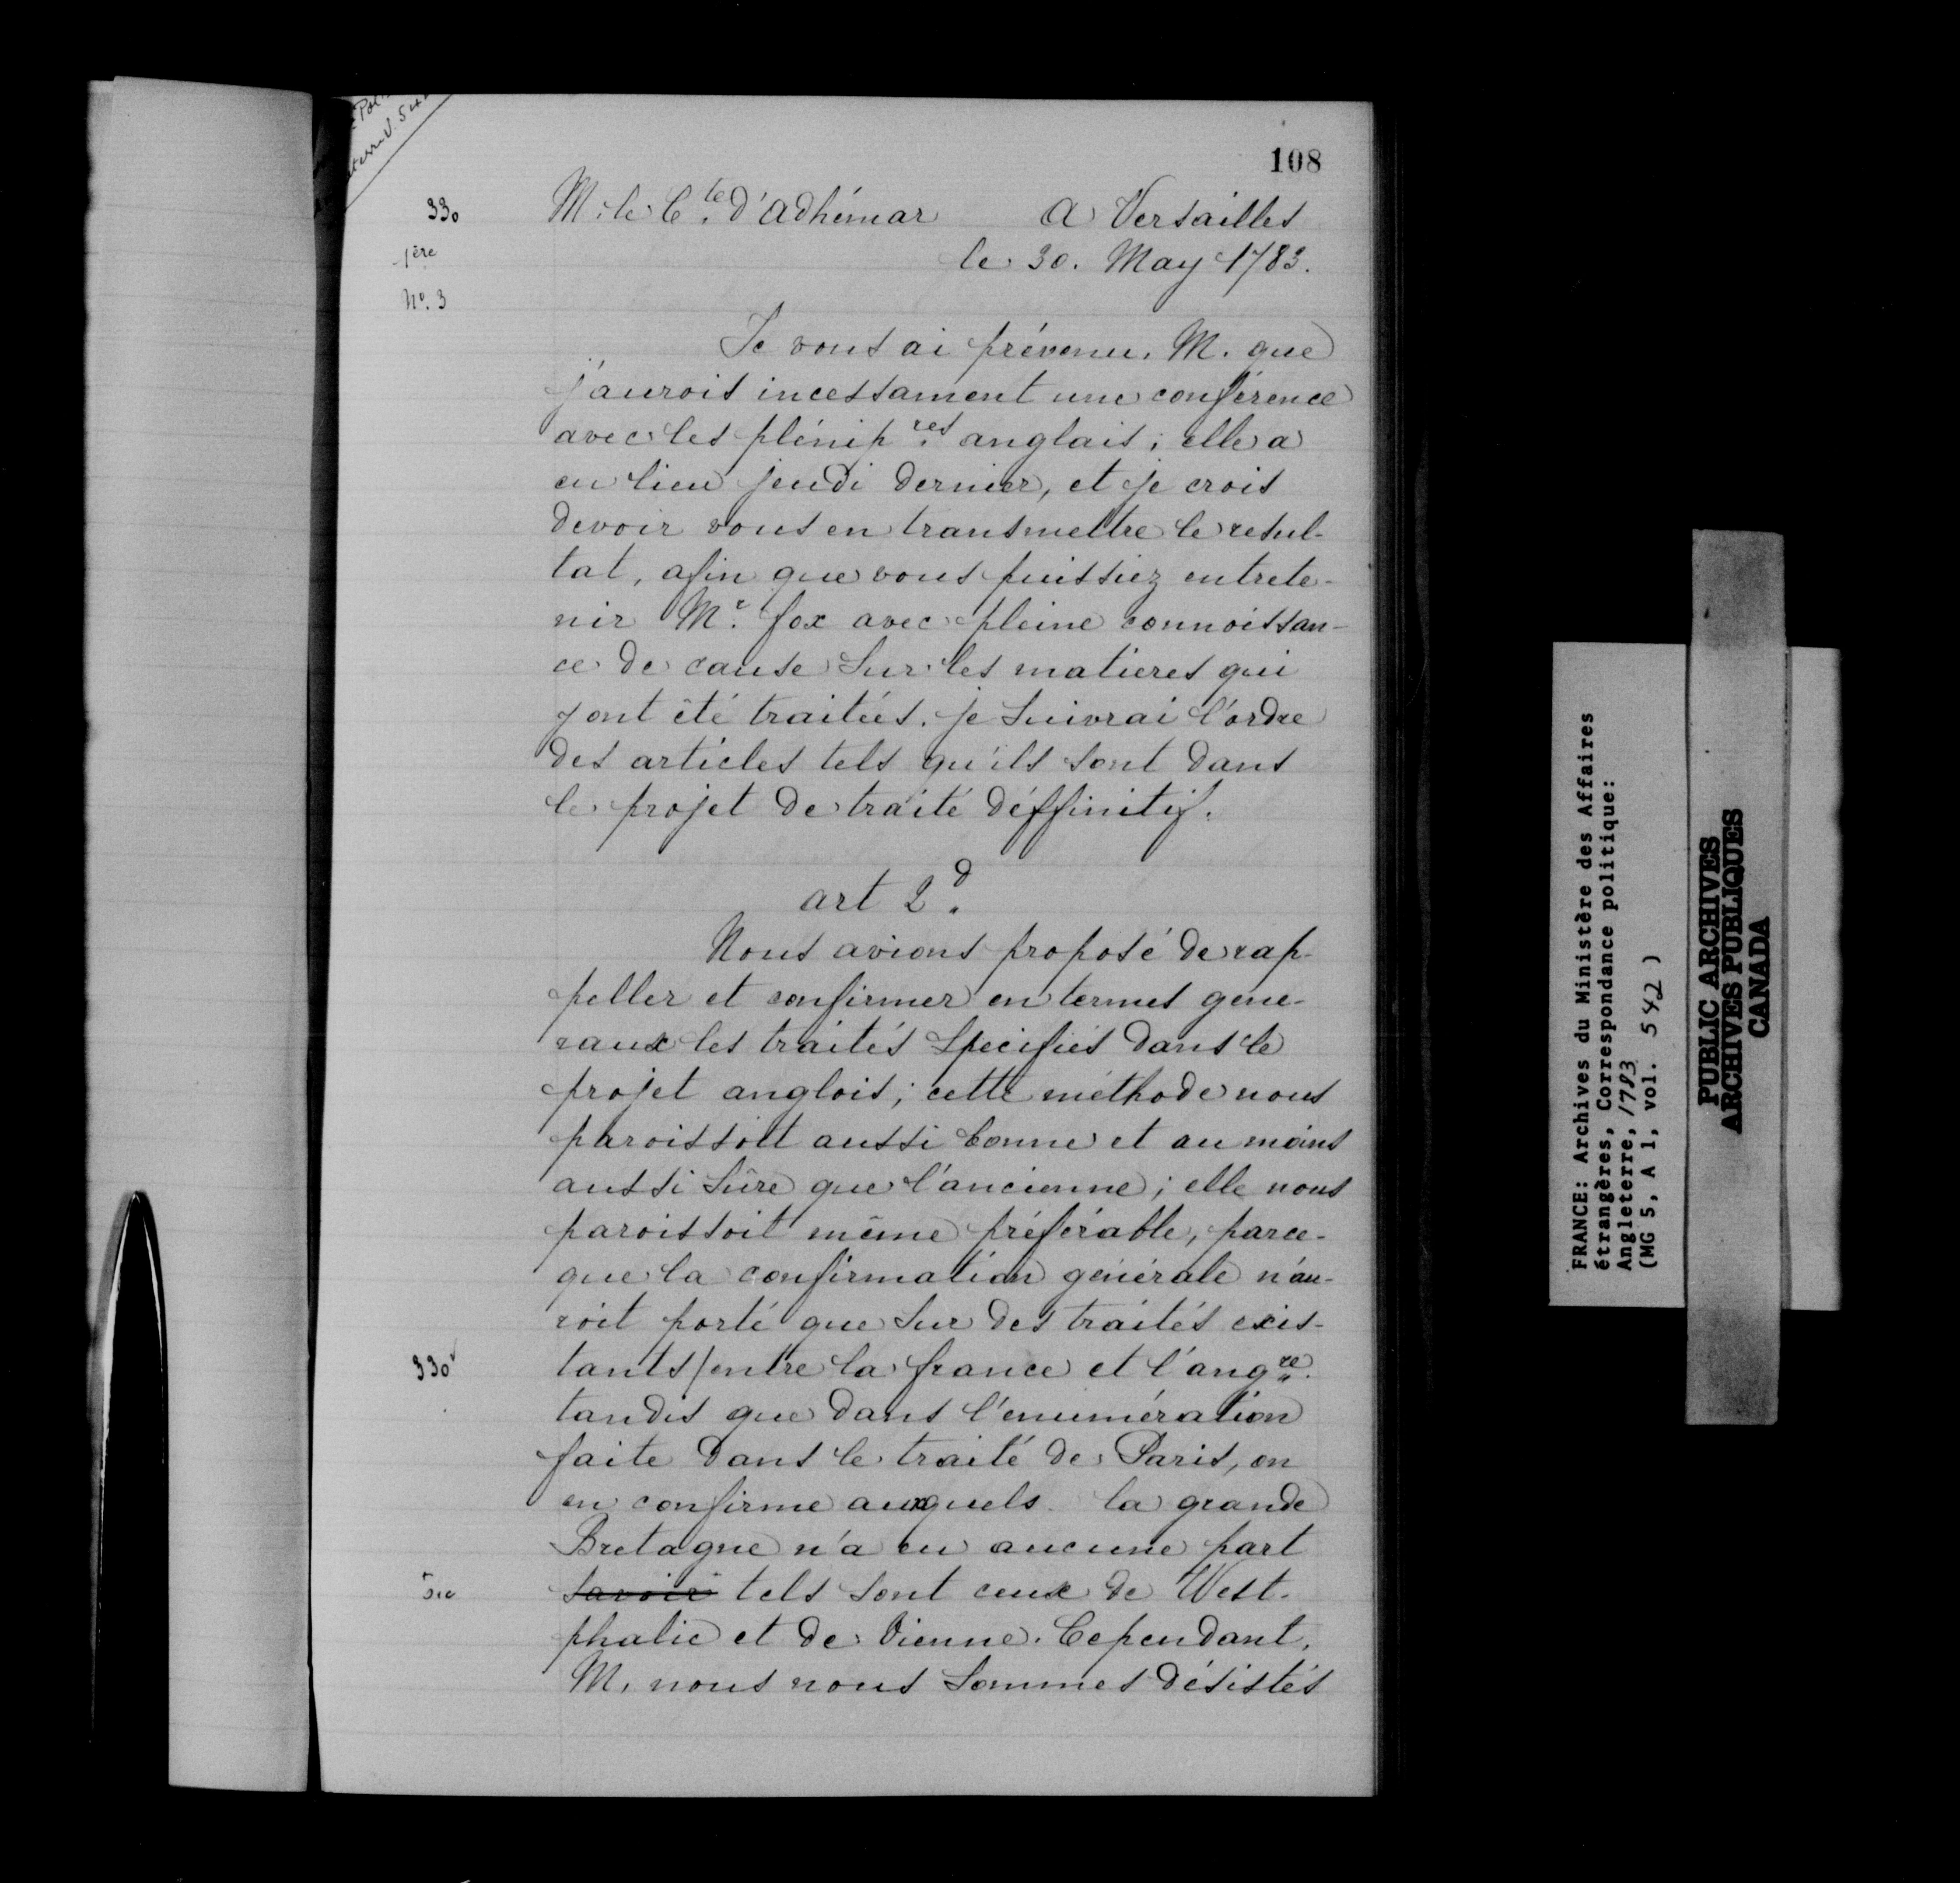 108
330 M. le Cte. d'Adhémar A Versailles
1ère le 30. May 1783.
No. 3
Je vous ai prévenu, M. que
j'aurois incessament une conférence
avec les plénipres. anglais; elle a
eu lieu jeudi dernier, et je crois
devoir vous en transmettre le resul-
tat, afin que vous puissiez entrete-
nir Mr. fox avec pleine connoissan-
ce de cause sur les matieres qui
y ont été traitées. je suivrai l'ordre
des articles tels qu'ils sont dans
le projet de traité déffinitif.
art 2d.
Nous avions proposé de rap-
peller et confirmer en termes gene-
raux les traités specifiés dans le
projet anglois; cette méthode nous
paroissoit aussi bonne et au moins
aussi sûre que l'ancienne; elle nous
paroissoit même préférable, parce-
que la confirmation générale n'au-
roit porté que sur des traités exis-
330v tants/entre la france et l'angre.
tandis que dans l'enumération
faite dans le traité de Paris, on
en confirme auxquels la grande
Bretagne n'a eu aucune part
sic savoir tels sont ceux de West-
phalie et de Vienne. Cependant,
M. nous nous sommes désistés
FRANCE: Archives du Ministère des Affaires
étrangères, Correspondance politique:
Angleterre, 1783
(MG 5, A 1, vol. 542 )
PUBLIC ARCHIVES
ARCHIVES PUBLIQUES
CANADA